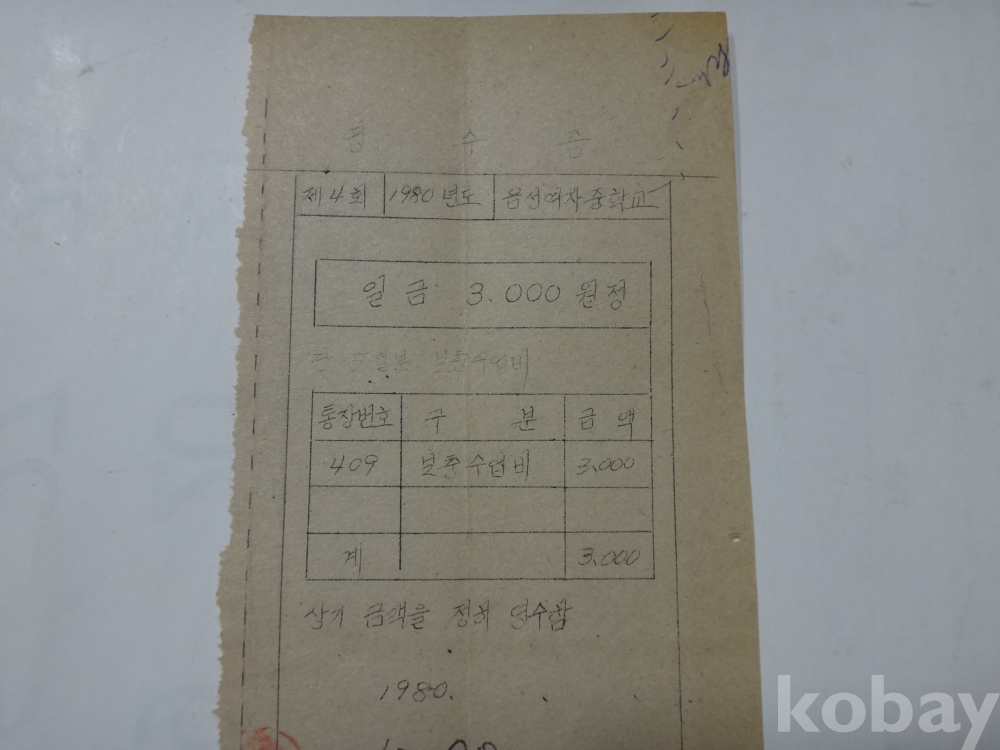 영 수 증
제4회 1980년도 음성여자중학교
일금 3.000원정
보충수업비
통장번호 구 분 금 액
409 보충수업비 3.000
계 3.000
상기 금액을 정히 영수함
1980.
kobay